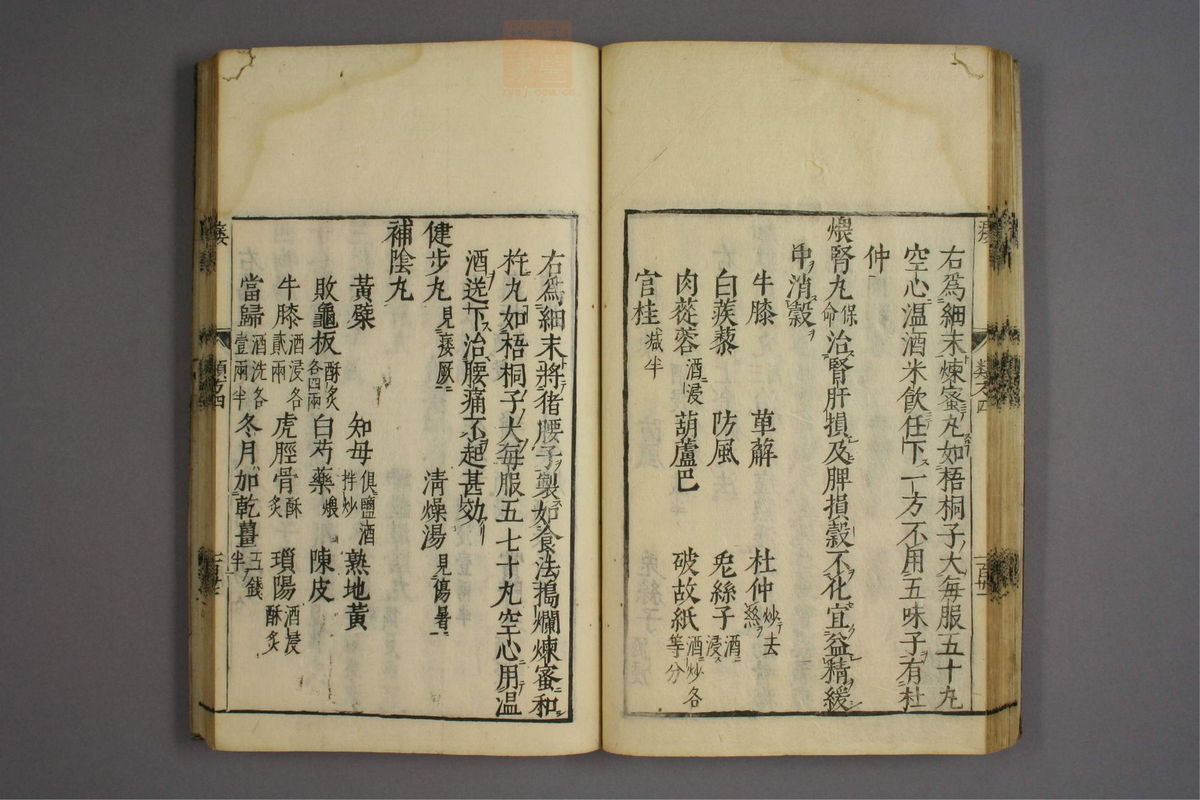 右爲細末煉蜜丸如梧桐子大毎服五十丸
空心温酒米飲任下一方不用五味子有杜
仲
煨腎丸 保命 治腎肝損及脾損穀不化宜益精緩
中消穀
牛膝 萆薢 杜仲 炒去𮈔
白蒺藜 防風 兎絲子 酒浸
肉蓯蓉 酒浸 葫蘆巴 破故紙 酒炒各等分
官桂 减半
右爲細末將猪腰子製如食法搗爛煉蜜和
杵丸如梧桐子大毎服五七十丸空心用温
酒送下治腰痛不起甚効
健歩丸 見痿厥 清燥湯 見傷暑
補陰丸
黃蘗 知母 俱鹽酒拌炒 熟地黃
敗龜板 酥炙各四兩 白芍藥 煨 陳皮
牛膝 酒浸各貳兩 虎脛骨 酥炙 瑣陽 酒浸酥炙
當歸 酒洗各壹兩半 冬月加乾薑 五錢半